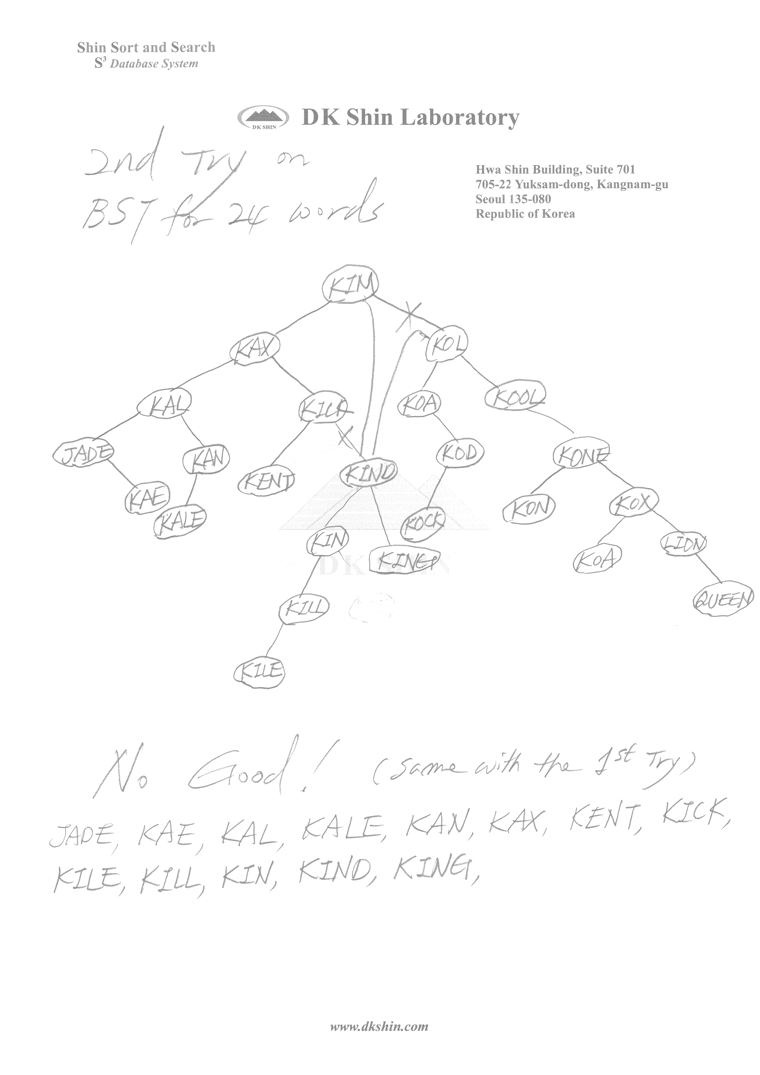 Shin Sort and Search
S³ Database System
DK SHIN
DK Shin Laboratory
Hwa Shin Building, Suite 701
705-22 Yuksam-dong, Kangnam-gu
Seoul 135-080
Republic of Korea
2nd Try on
BST for 24 words
KIM
KAX KOL
KAL KICK KOA KOOL
JADE KAN KENT KIND KOD KONE
KAE KALE KOCK KON KOX
KIN KING KOA LION
DK SHIN
KILL QUEEN
KILE
No Good! (Same with the 1st Try)
JADE, KAE, KAL, KALE, KAN, KAX, KENT, KICK,
KILE, KILL, KIN, KIND, KING,
www.dkshin.com